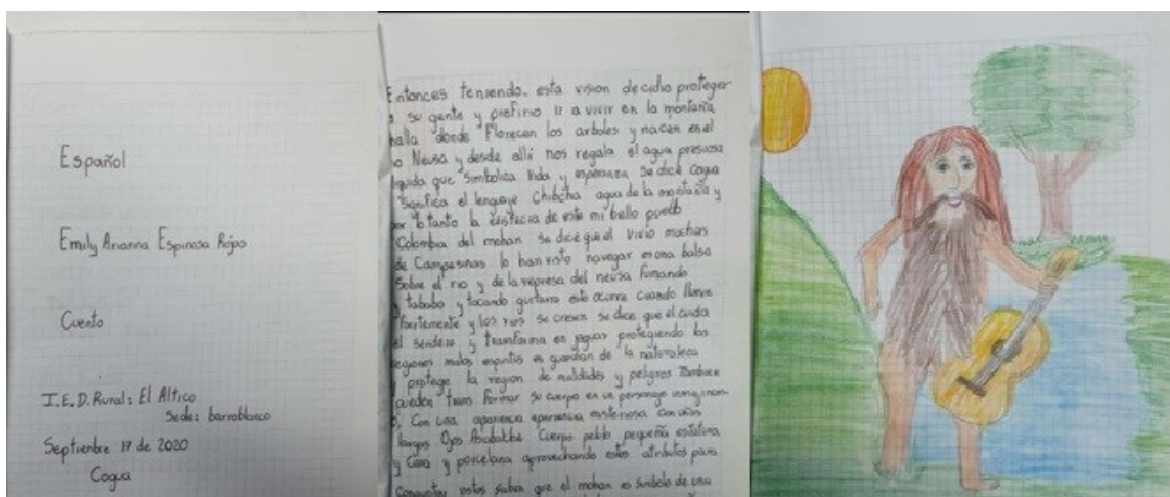 Español
Emily Arianna Espinosa Rojas
Cuento
I.E.D. Rural: El Altico
Sede: barroblanco
Septiembre 17 de 2020
Cogua
Entonces teniendo esta vision decidio proteger
su gente y prefirio ir a vivir en la montaña
halla donde Florecen los arboles y nacen en el
Neusa y desde alli nos regala el agua presiosa
que simboliza vida y esperanza se dice cogua
significa el lenguaje chibcha agua de la montaña y
lo tanto la de este mi bello pueblo
Colombia del mohan se dice que el vivio muchas
de Campesinas lo han visto navegar en una balsa
Sobre el rio y de la represa del neusa fumando
tababa y tocando guitarra esto ocurre cuando llueve
fuertemente y los rios se crecen se dice que el cuida
el sendero y transforma en jaguar protegiendo las
regiones malos espiritus es guardian de la naturaleza
protege la region de maldades y peligros Tambien
pueden trans formar su cuerpo en un personaje
Con una apariencia misteriosa con uñas
largas Ojos Cuerpo peludo pequeña estatura
y Cara y porcelana aprovechando estos atributos para
estos saben que el mohan es simbolo de una